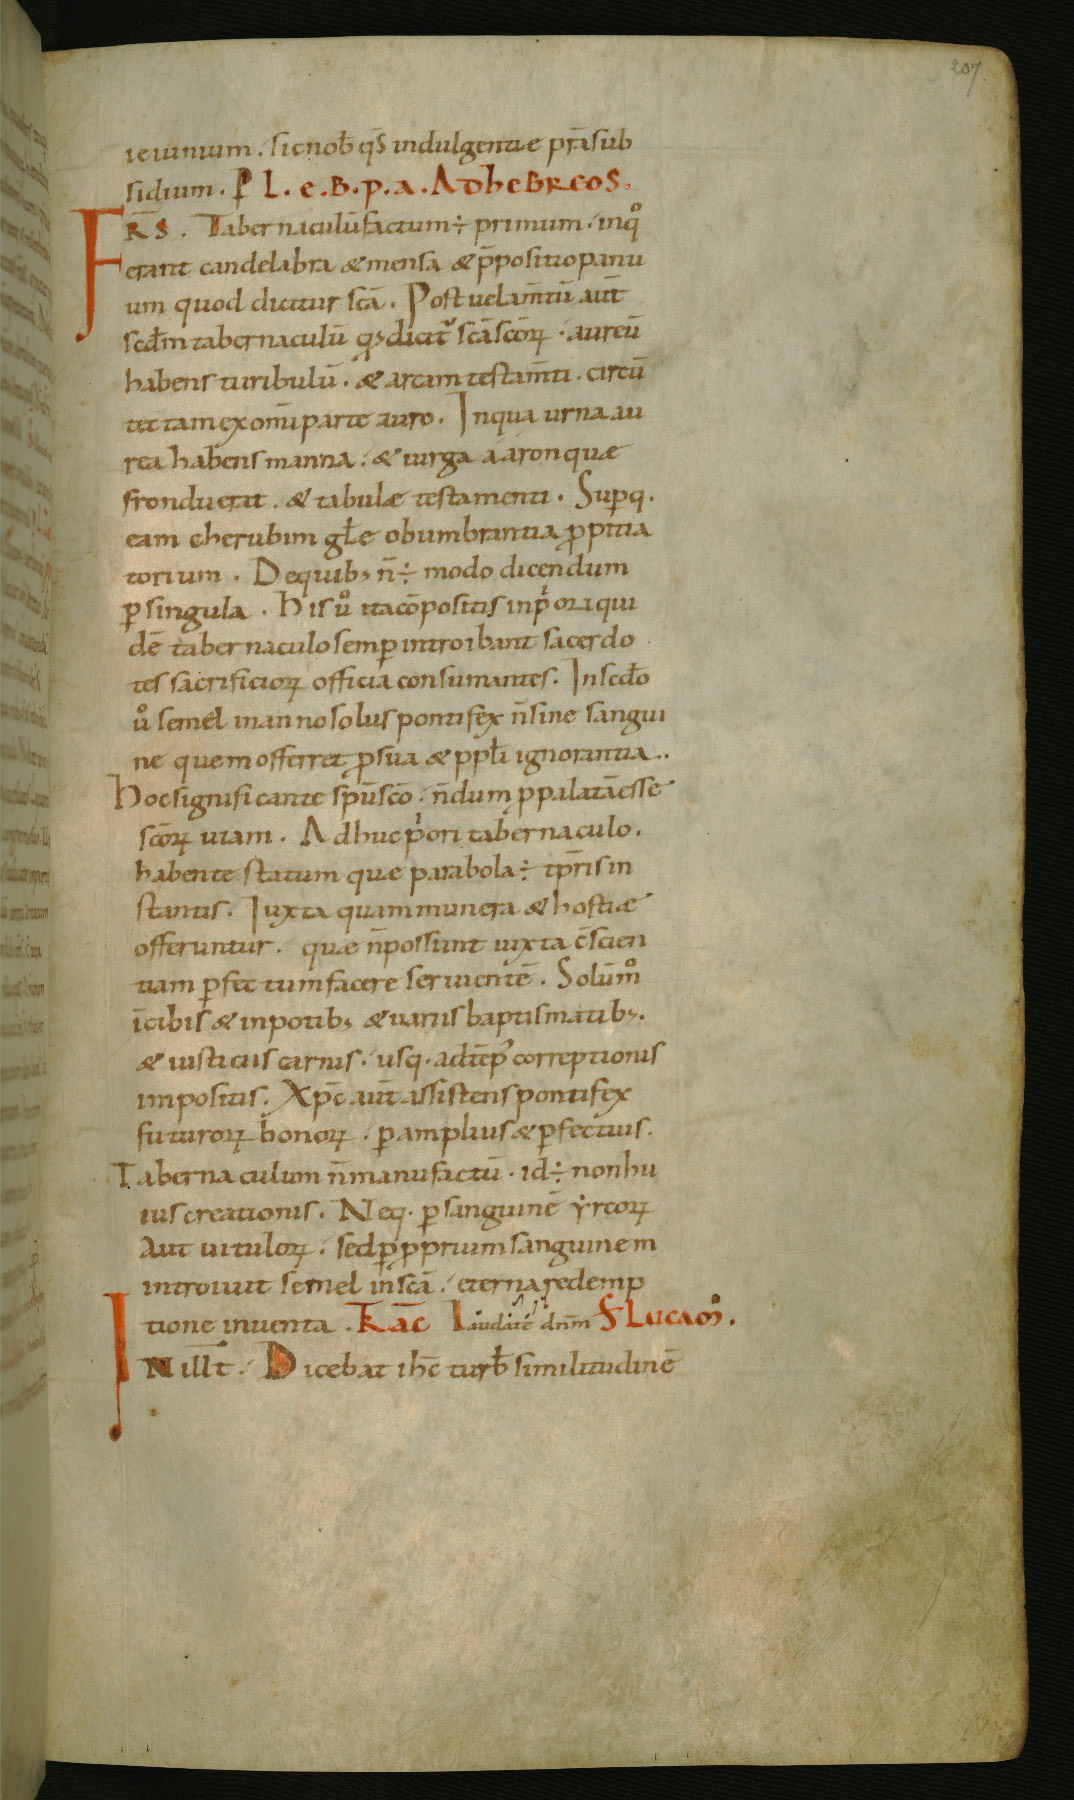 207
ieiunium. sic nob̄ q̄s indulgentiae p̄ra sub
sidium. P L. e. B. p. a. Ad heBreos.
FR̄S. Tabernaculū factum ÷ primum. in qͦ
erant candelabra & mensa & p̄positio panu
um quod dicitur sc̄a. Post uelam̄tū aut̄
scd̄m tabernaculū qđ dicit̄ sc̄a sc̄oꝝ. aureū
habens turibulū. & arcam testam̄ti. circū
tectam ex om̄i parte auro. In qua urna au
rea habens manna. & uirga aaron quae
fronduerat. & tabulae testamenti. Supq.
eam cherubim gl̄e obumbrantia ꝓpitia
torium. De quib; n̄ ÷ modo dicendum
ꝑ singula. His uͦ ita cōpositis in pͥori qui
dē tabernaculo semꝑ introibant sacerdo
tes sacrificioꝝ officia consumantes. In scd̄o
uͦ semel in anno solus pontifex n̄ sine sangui
ne quem offerret ꝓ sua & ppl̄i ignorantia..
Hoc significante sp̄u sc̄o. n̄dum ꝓpalatā esse
sc̄oꝝ uiam. Adhuc pͥori tabernaculo.
habente statum quae parabola ÷ tp̄ris in
stantis. Iuxta quam munera & hostiae
offeruntur. quae n̄ possunt iuxta c̄scien
tiam ꝑfectum facere seruientē. Solūmͦ
ī cibis & in potib; & uariis baptismatib;.
& iusticiis carnis. usq. ad tēp̄ correptionis
impositis. Xp̄c aut̄ assistens pontifex
futuroꝝ bonoꝝ. ꝑ amplius & ꝑfectius.
Tabernaculum n̄ manufactū. id ÷ non hu
ius creationis. Neq. ꝑ sanguinē yrcoꝝ
Aut uituloꝝ. sed ꝑ ꝓprium sanguinem
introiuit semel in sc̄a. eterna redemp
tione inuenta. K̄ac Laudate dn̄m S Lucam.
IN ill̄ t̄. Dicebat ih̄c turb̄ similitudinē